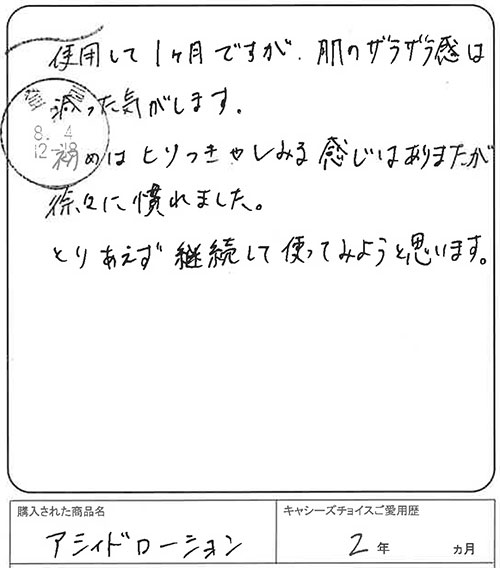 使用して1ヶ月ですが、肌のザラザラ感は
減った気がします。
8. 4
12-18
初めはヒリつきやしみる感じはありまたが
徐々に慣れました。
とりあえず継続して使ってみようと思います。
購入された商品名
キャシーズチョイスご愛用歴
アシィドローション
2年 ヵ月